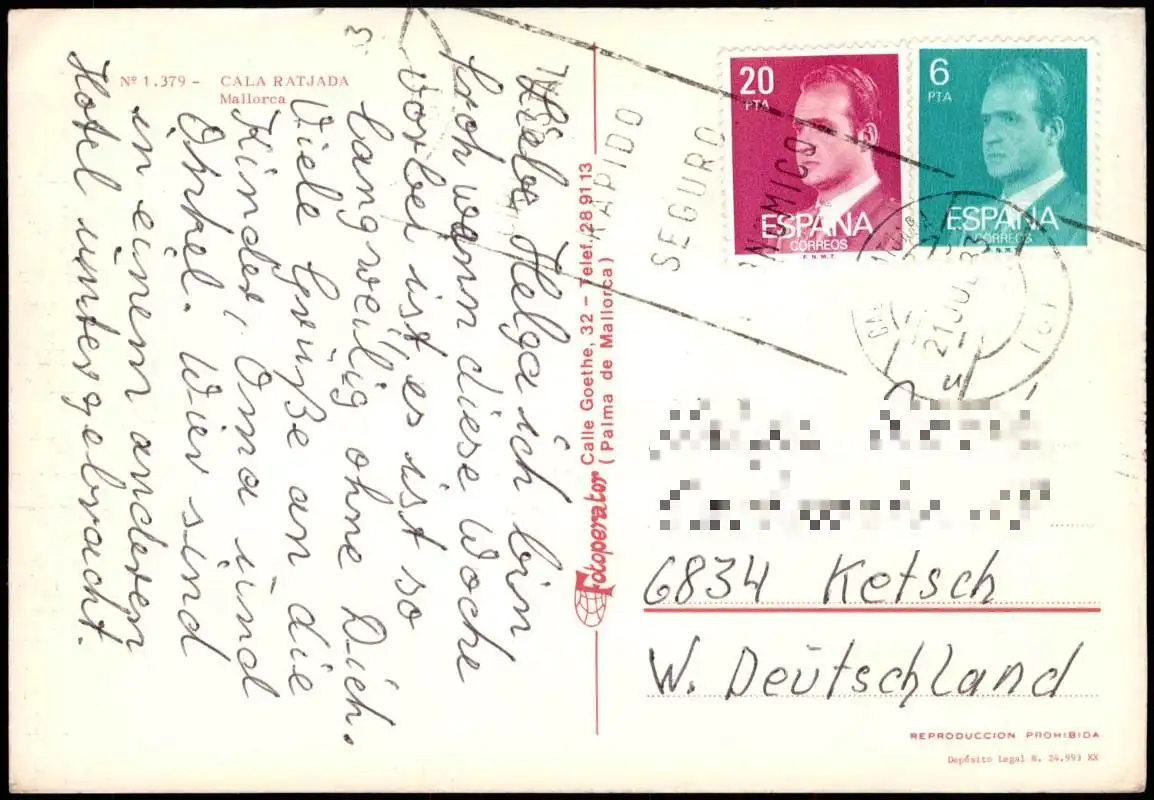 Nº 1.379 - CALA RATJADA
Mallorca
Liebe Helga ich bin
froh wann diese Woche
vorbei ist, es ist so
langweilig ohne Dich.
Viele Grüße an die
Kinder, Oma und
Onkel. Wier sind
in einem anderen
Hotel untergebracht.
Fotoperator Calle Goethe, 32 - Telef. 28 91 13
(Palma de Mallorca)
RAPIDO
SEGURO
20
PTA
ESPAÑA
CORREOS
F.N.M.T.
6
PTA
ESPAÑA
CORREOS
F.N.M.T.
21 JUL
6834 Ketsch
W. Deutschland
REPRODUCCION PROHIBIDA
Depósito Legal B. 24.993 XX